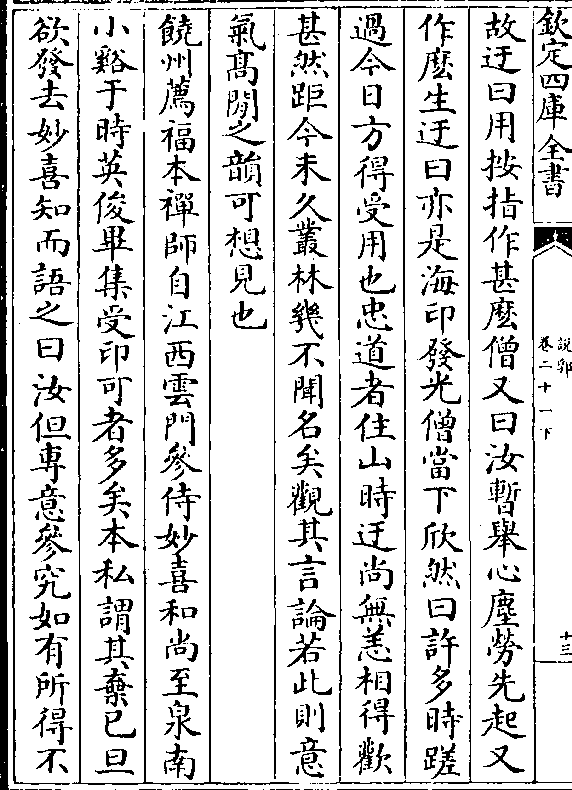 欽定四庫全書
說郛
卷二十一下
十三
故迂曰用按指作甚麽僧又曰汝暫舉心塵勞先起又
作麽生迂曰亦是海印發光僧當下欣然曰許多時蹉
過今日方得受用也忠道者住山時迂尚無恙相得歡
甚然距今未久叢林幾不聞名矣觀其言論若此則意
氣髙閒之韻可想見也
饒州薦福本禪師自江西雲門參侍妙喜和尚至泉南
小谿于時英俊畢集受印可者多矣本私謂其棄已旦
欲發去妙喜知而語之曰汝但專意參究如有所得不